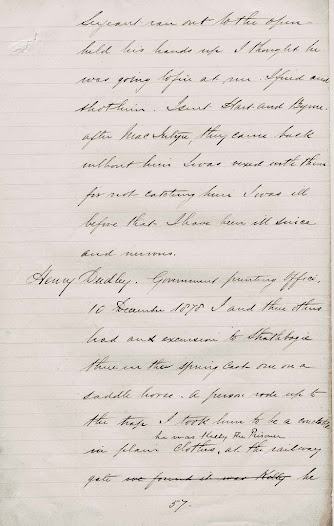 Sergeant ran out to the open
held his hands up I thought he
was going to fire at me. I fired and
shot him. I sent Hart and Byrne
after MacIntyre, they came back
without him I was vexed with them
for not catching him I was ill
before that I have been ill since
and nervous.
Henry Dudley. Government printing Office.
10 December 1878 I and three others
had and excursion to Strathbogie
three in the spring cart one on a
saddle horse. A person rode up to
the trap I took him to be a constable
he was Kelly the Prisoner
in plain Clothes, at the railway
gate we found it was Kelly he
57.